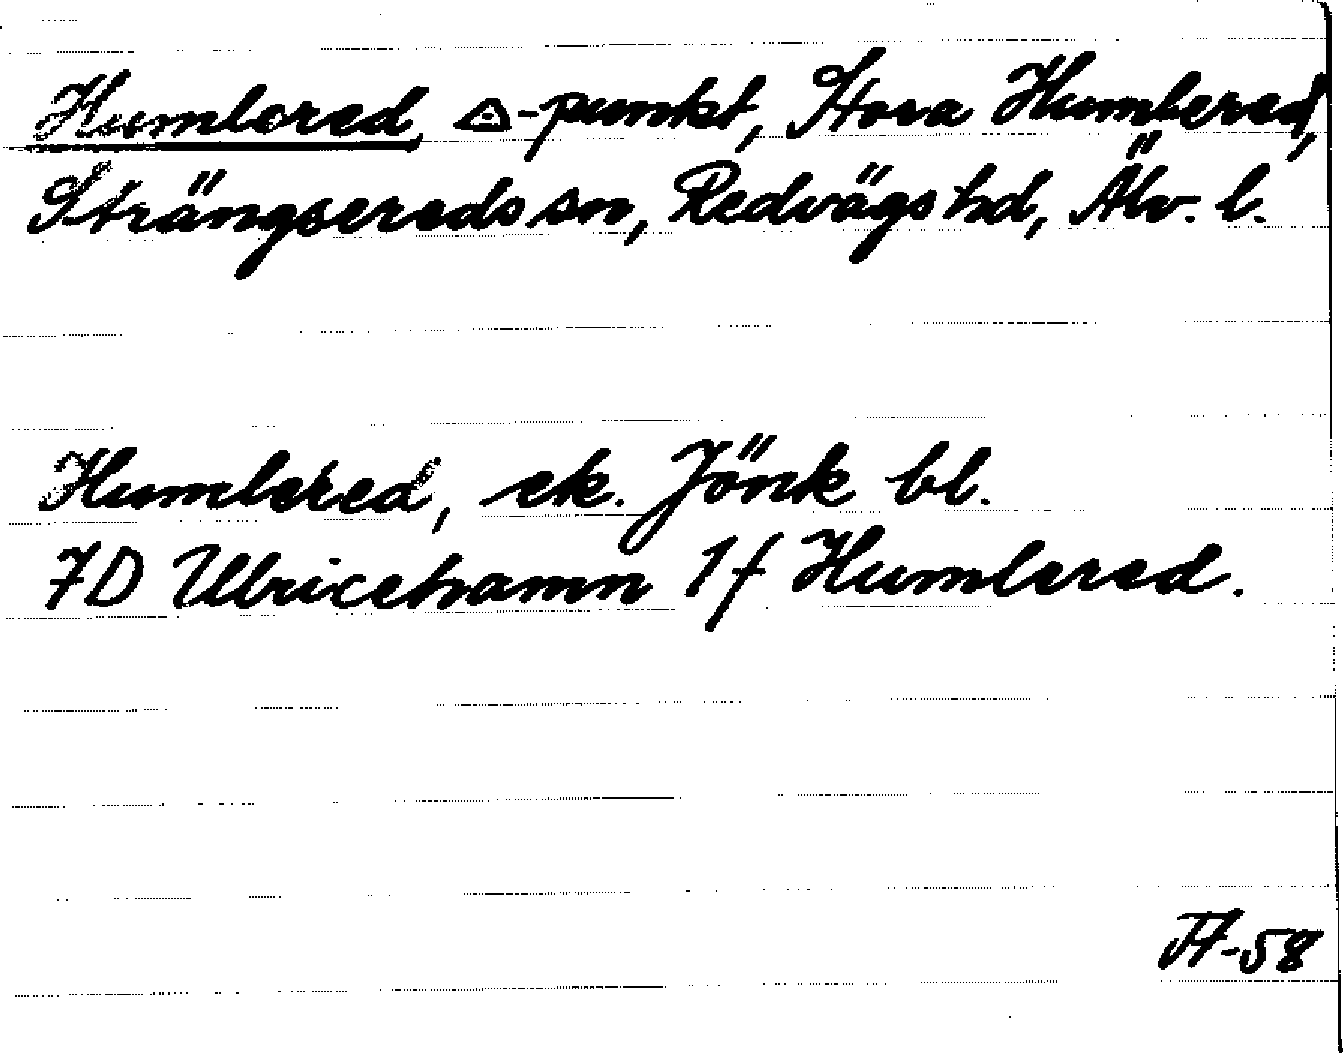 Humlered, △-punkt, Stora Humlered,
Strängsereds sn, Redvägs hd, Älv. l.
Humlered, ek. Jönk bl.
7D Ulricehamn 1f Humlered.
-58